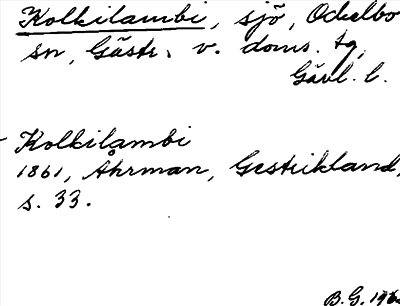 Kolkilambi, sjö, Ockelbo
sn, Gästr. v. doms. tg,
Gävl. l.
Kolkilambi
1861, Åhrman, Gestrikland,
s. 33.
B.G.